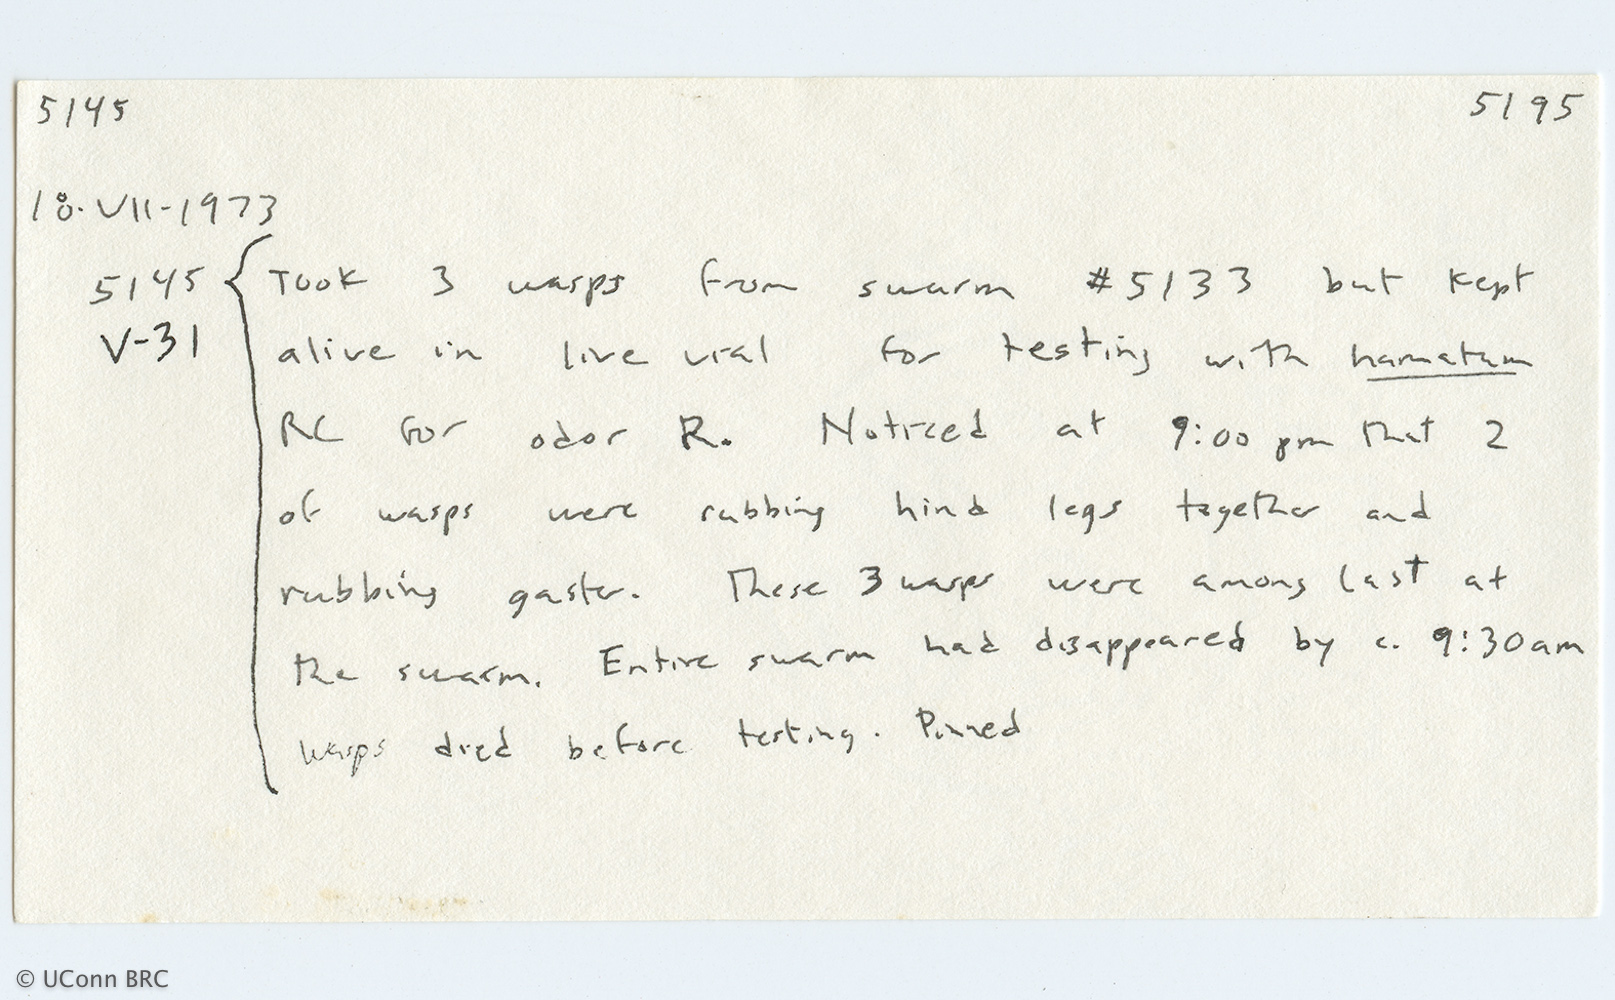 5145 5195
18-VII-1973
5145 Took 3 wasps from swarm #5133 but kept
V-31 alive in live vial for testing with hamatum
RC for odor R. Noticed at 9:00 pm that 2
of wasps were rubbing hind legs together and
rubbing gaster. These 3 wasps were among last at
the swarm. Entire swarm had disappeared by c. 9:30am
wasps died before testing. Pinned
© UConn BRC